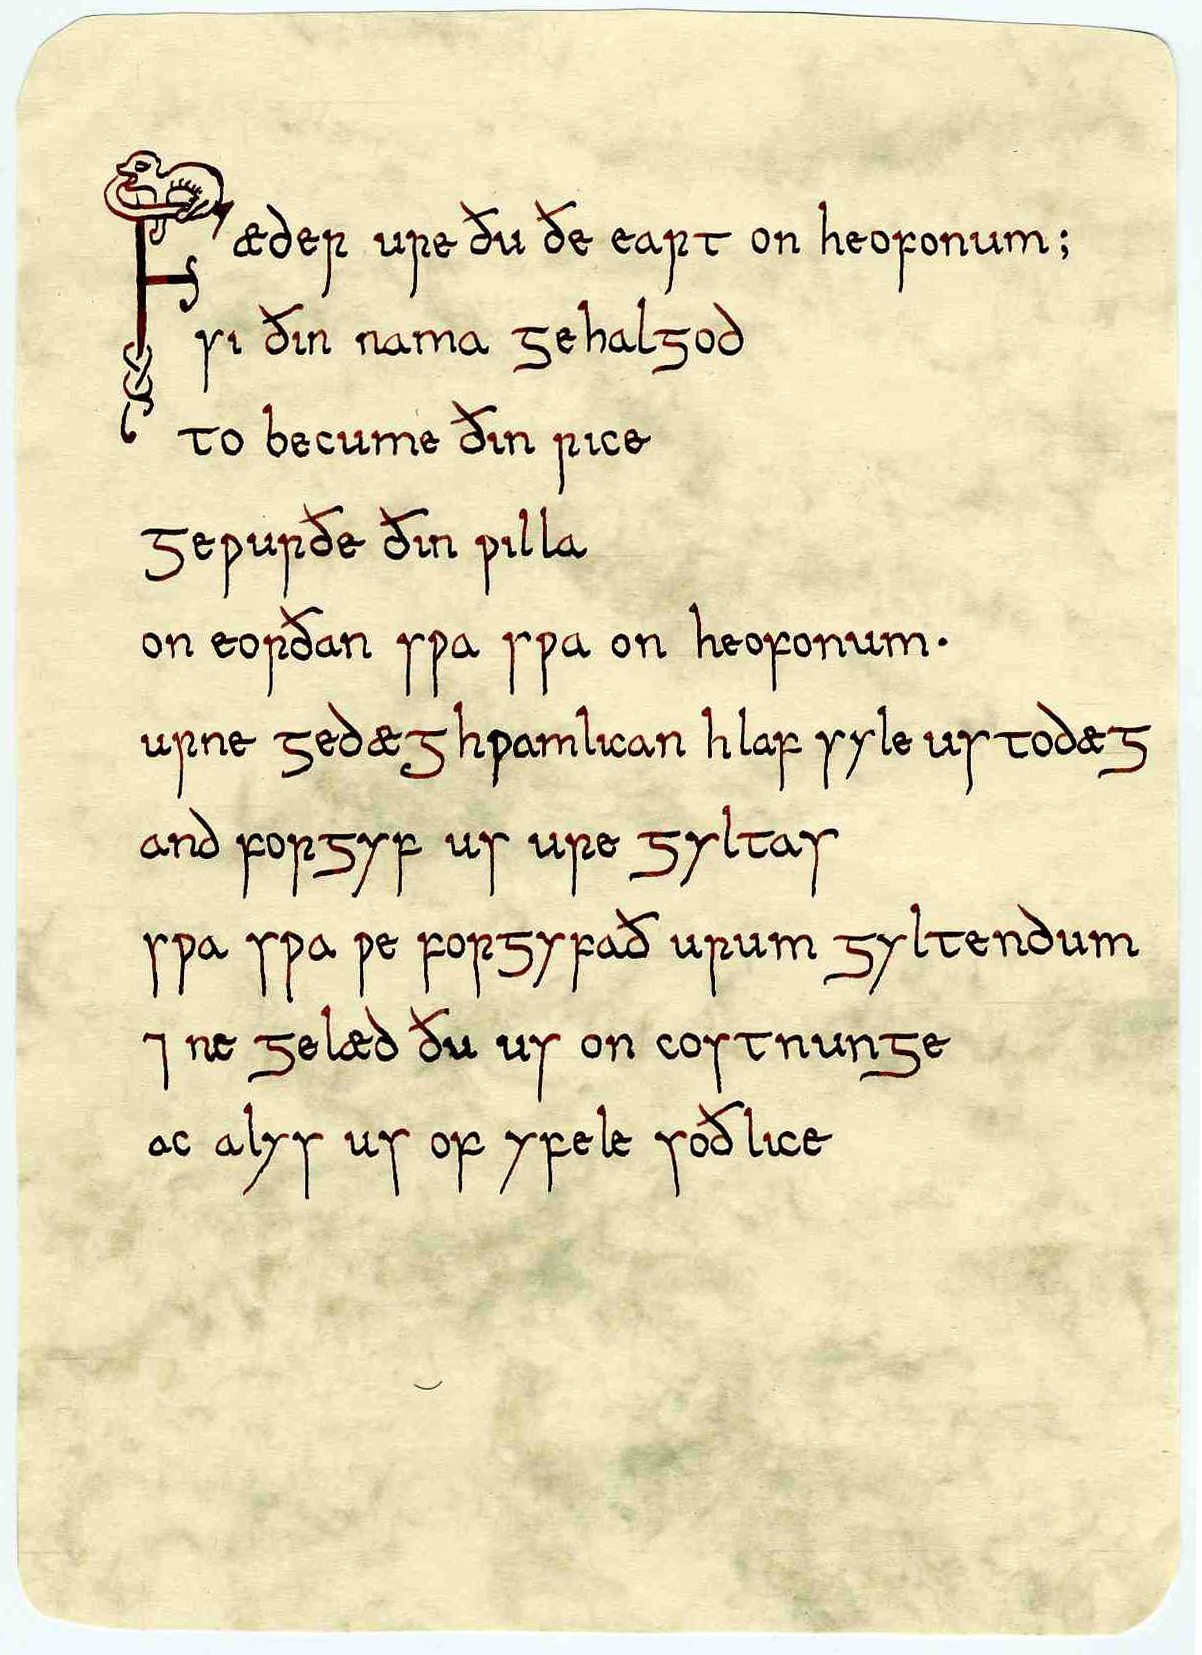 Fæder ure ðu ðe eart on heofonum;
si ðin nama gehalgod
to becume ðin rice
geƿurðe ðin ƿilla
on eorðan sƿa sƿa on heofonum·
urne gedæghƿamlican hlaf syle us todæg
and forgyf us ure gyltas
sƿa sƿa ƿe forgyfað urum gyltendum
⁊ ne gelæd ðu us on costnunge
ac alys us of yfele soðlice